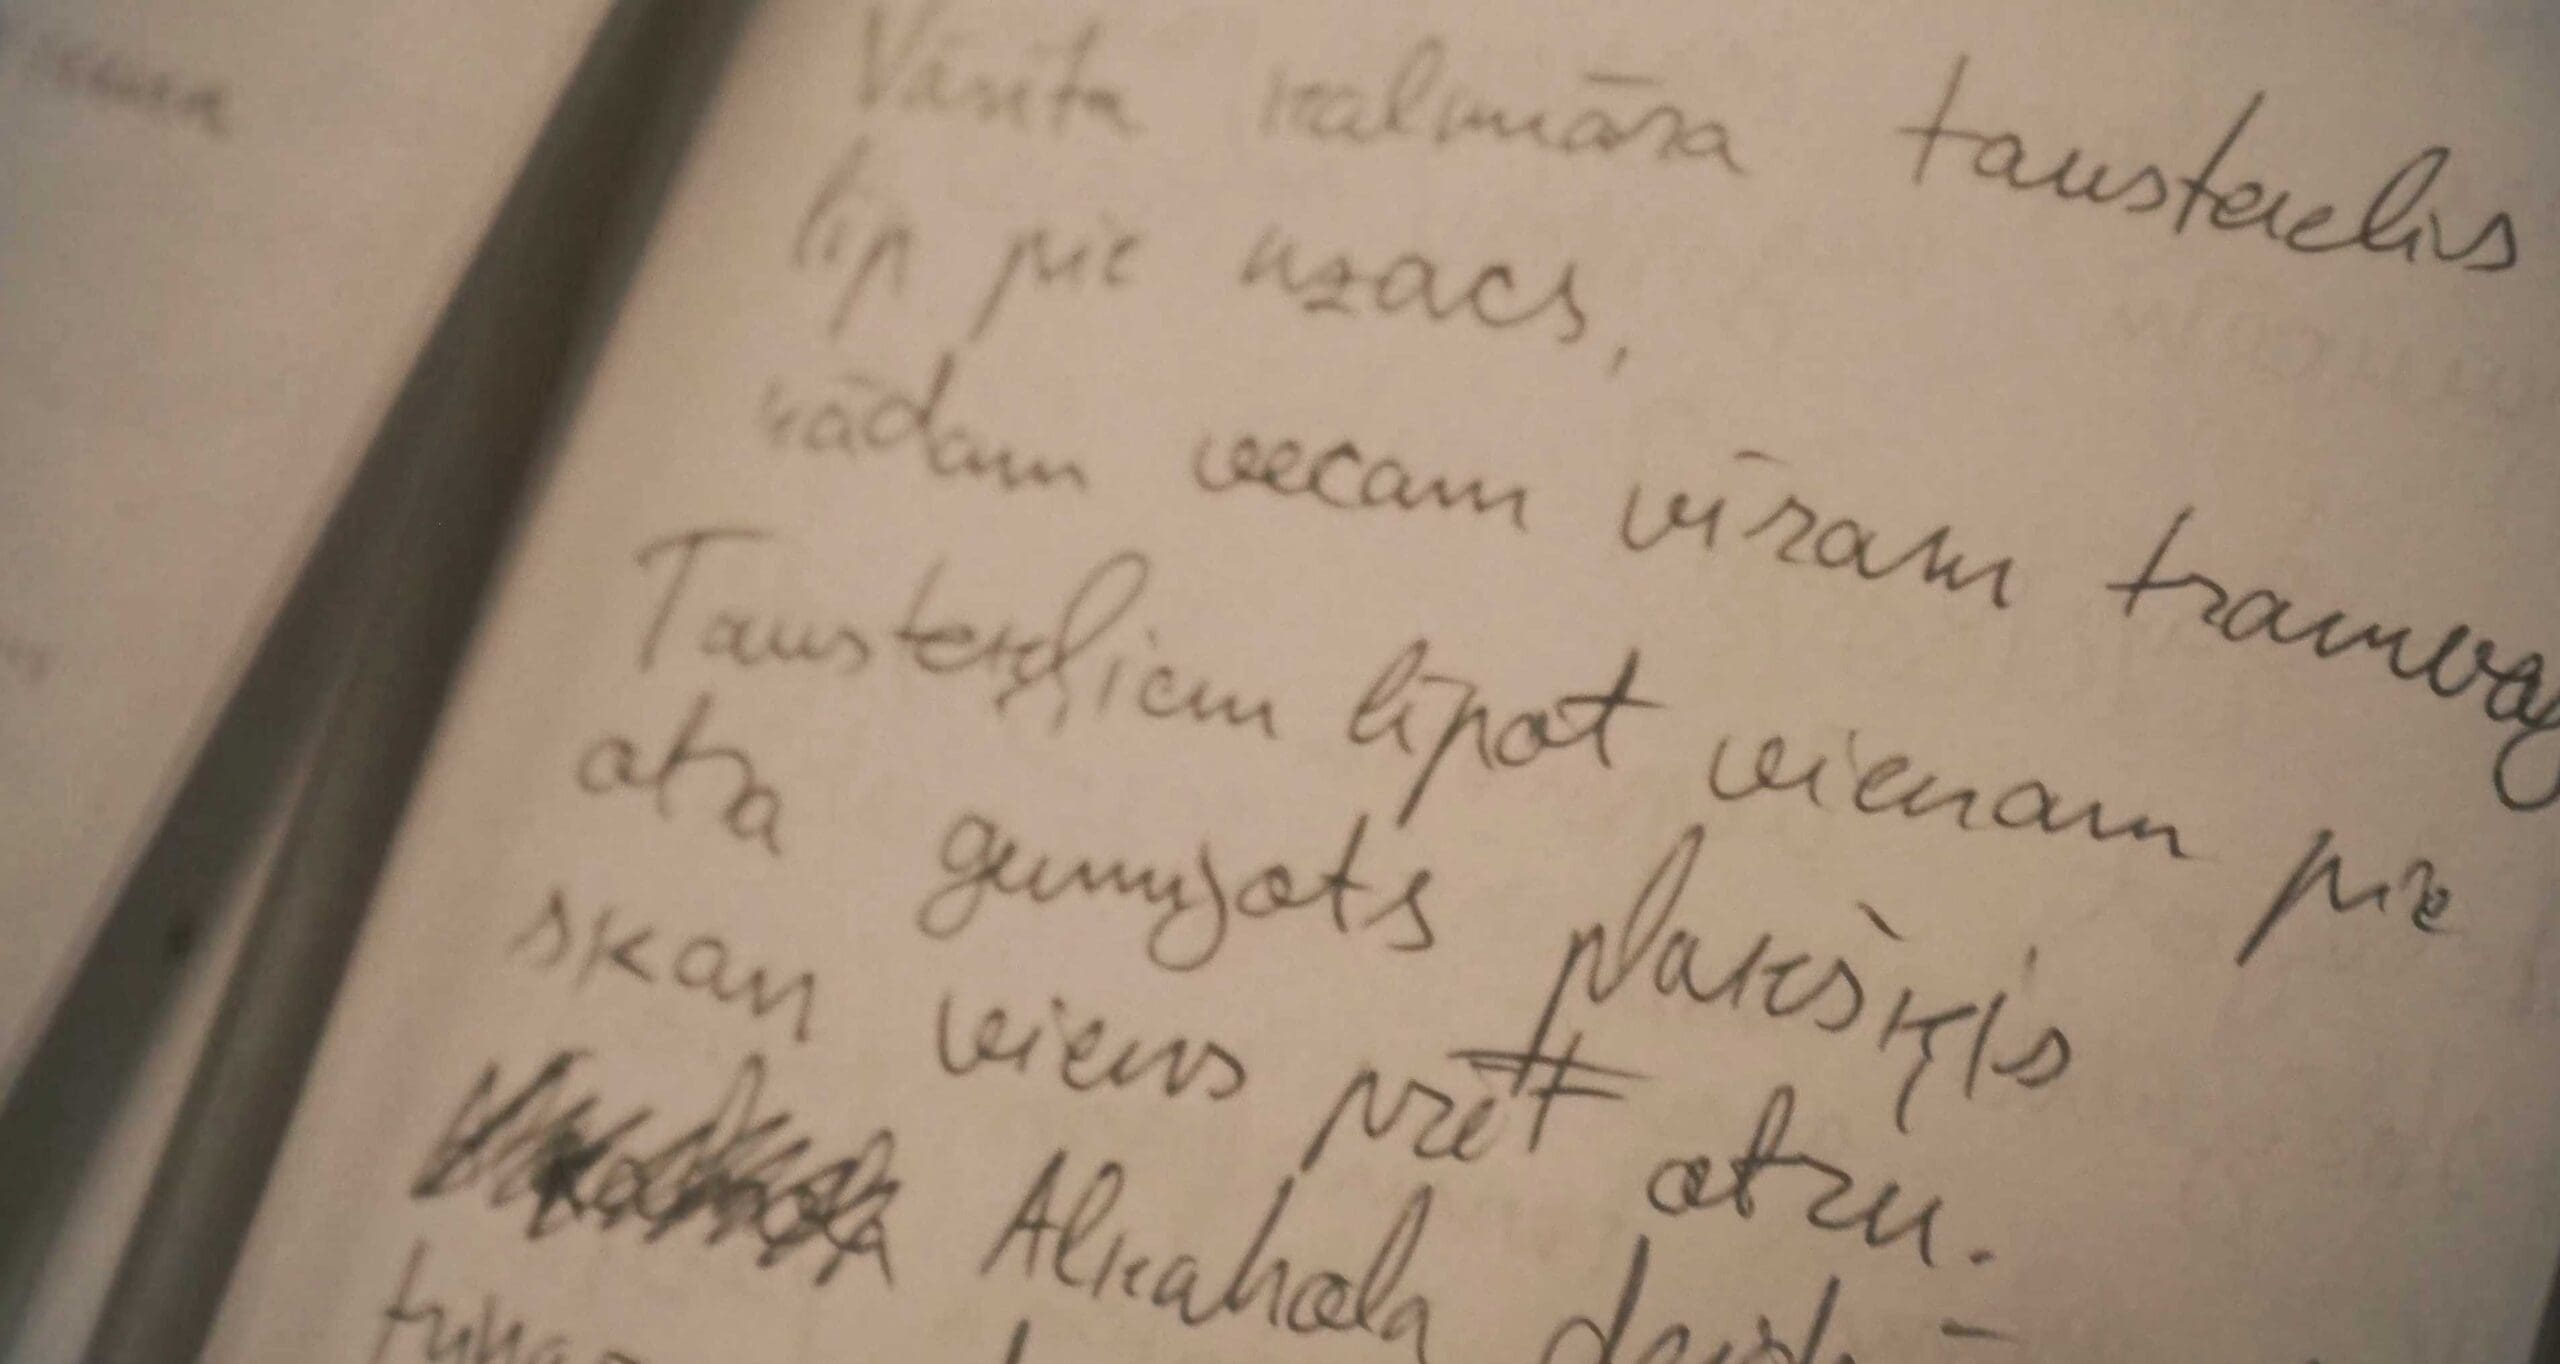 Vārīta kalmāra tausteklis
līp pie uzacs,
rādam vecam vīram tramvaj
Taustekļiem līpot vienam pie
otra gumijots plakšķis
skan viens pret otru.
Alkahola